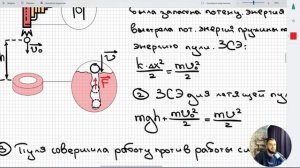 было запасено потену. энергия
выстрела пот. энергий пружины п
энергию пули. ЗСЭ:
k·Δx²/2 = mυ₀²/2
② ЗСЭ для летящей пул
mgh + mυ₀²/2 = mυ²/2
③ Пуля совершила работу против работы си
υ₀
h
υ
F